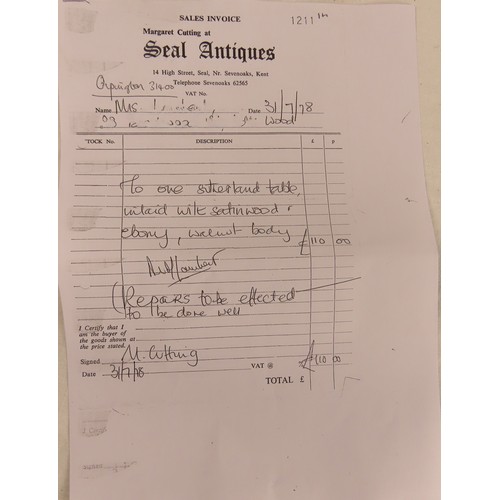 SALES INVOICE
1211
Margaret Cutting at
Seal Antiques
14 High Street, Seal, Nr. Sevenoaks, Kent
Telephone Sevenoaks 62565
Orpington 31400
VAT No.
Name Mrs Date 31/7/78
Wood
TOCK No. DESCRIPTION £ p
To one sutherland table,
inlaid with satinwood &
ebony, walnut body £110 00
(Repairs to be effected
to be done well
I Certify that I
am the buyer of
the goods shown at
the price stated.
Signed M. Cutting
VAT @ £110 00
Date 31/7/78
TOTAL £